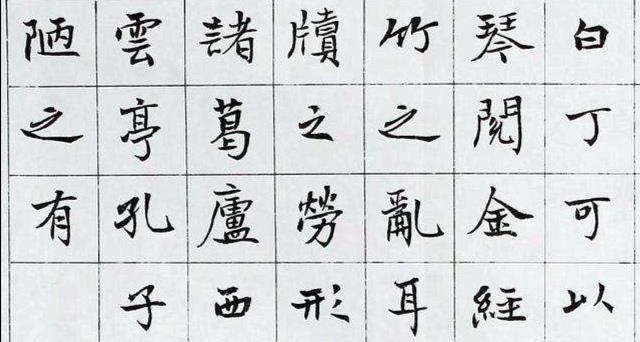 白丁可以
琴閱金經
竹之亂耳
牘之勞形
諸葛廬西
雲亭孔子
陋之有